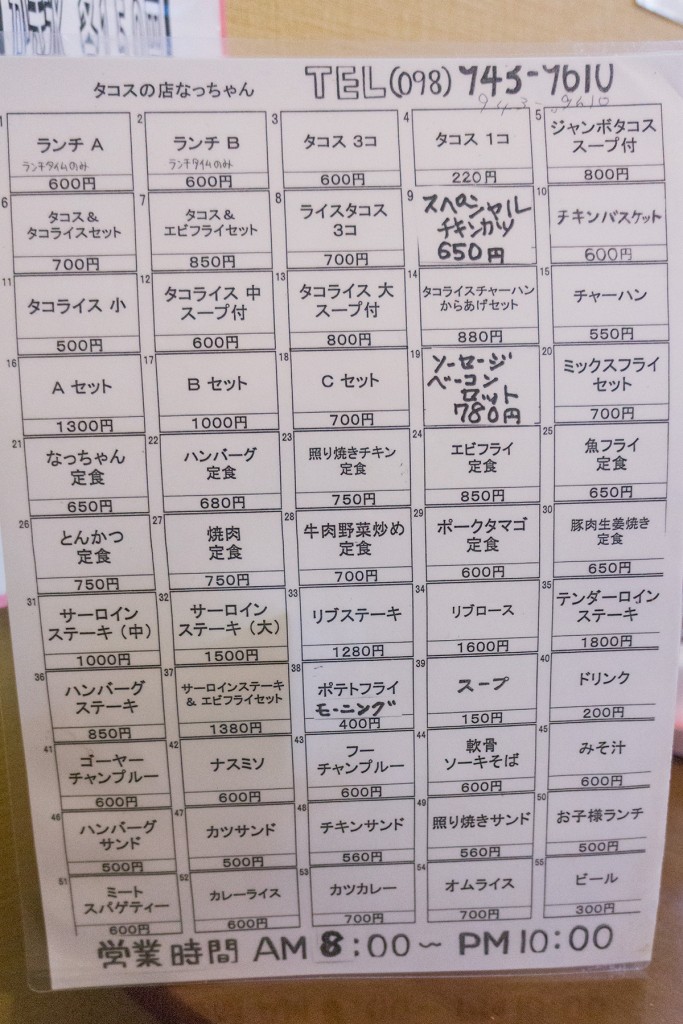 タコスの店なっちゃん TEL(098) 943-9610
943-9610
1 ランチ A
ランチタイムのみ
600円
2 ランチ B
ランチタイムのみ
600円
3 タコス 3コ
600円
4 タコス 1コ
220円
5 ジャンボタコス
スープ付
800円
6 タコス&
タコライスセット
700円
7 タコス&
エビフライセット
850円
8 ライスタコス
3コ
700円
9 スペシャル
チキンカツ
650円
10 チキンバスケット
600円
11 タコライス 小
500円
12 タコライス 中
スープ付
600円
13 タコライス 大
スープ付
800円
14 タコライスチャーハン
からあげセット
880円
15 チャーハン
550円
16 A セット
1300円
17 B セット
1000円
18 C セット
700円
19 ソーセージ
ベーコン
セット
780円
20 ミックスフライ
セット
700円
21 なっちゃん
定食
650円
22 ハンバーグ
定食
680円
23 照り焼きチキン
定食
750円
24 エビフライ
定食
850円
25 魚フライ
定食
650円
26 とんかつ
定食
750円
27 焼肉
定食
750円
28 牛肉野菜炒め
定食
700円
29 ポークタマゴ
定食
600円
30 豚肉生姜焼き
定食
650円
31 サーロイン
ステーキ（中）
1000円
32 サーロイン
ステーキ（大）
1500円
33 リブステーキ
1280円
34 リブロース
1600円
35 テンダーロイン
ステーキ
1800円
36 ハンバーグ
ステーキ
850円
37 サーロインステーキ
& エビフライセット
1380円
38 ポテトフライ
モーニング
400円
39 スープ
150円
40 ドリンク
200円
41 ゴーヤー
チャンプルー
600円
42 ナスミソ
600円
43 フー
チャンプルー
600円
44 軟骨
ソーキそば
600円
45 みそ汁
600円
46 ハンバーグ
サンド
500円
47 カツサンド
500円
48 チキンサンド
560円
49 照り焼きサンド
560円
50 お子様ランチ
500円
51 ミート
スパゲティー
600円
52 カレーライス
600円
53 カツカレー
700円
54 オムライス
700円
55 ビール
300円
営業時間 AM 8:00～ PM 10:00